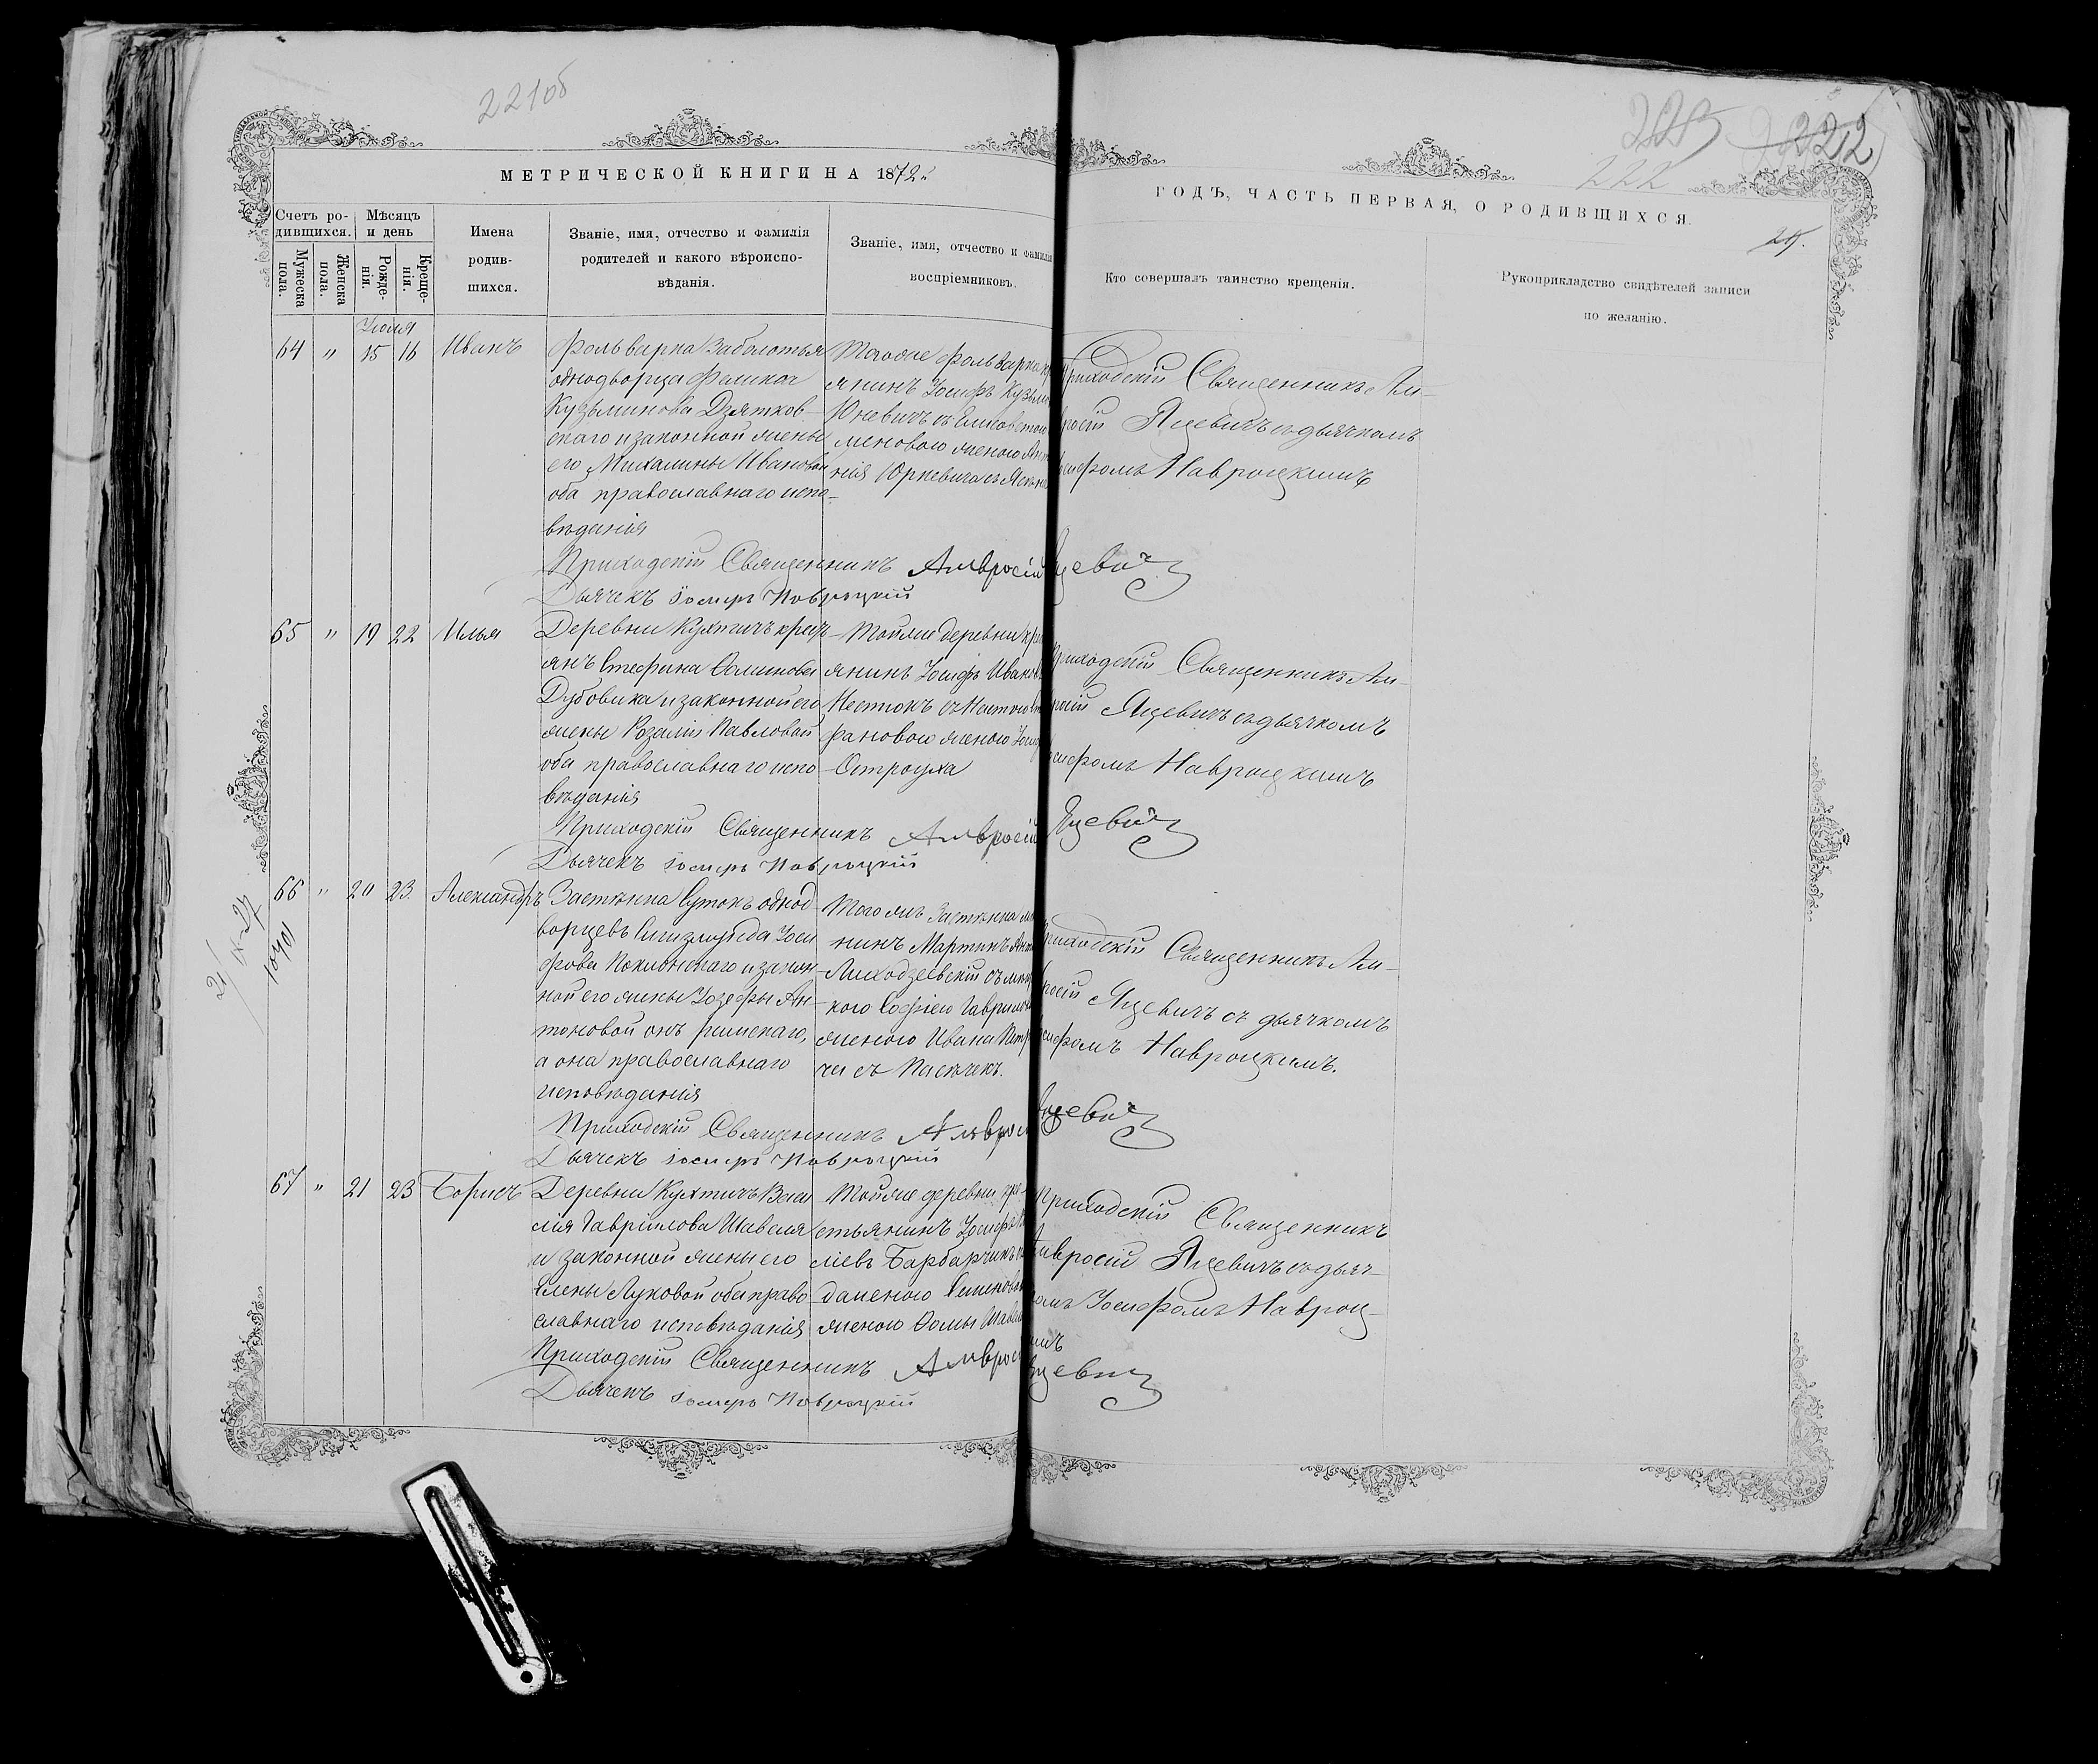 221об
222
222
МЕТРИЧЕСКОЙ КНИГИ НА 1872й
ГОДЪ, ЧАСТЬ ПЕРВАЯ, О РОДИВШИХСЯ.
Счетъ ро-
дившихся.
Мѣсяцъ
и день
Мужеска
пола.
Женска
пола.
Рожде-
нія.
Креще-
нія.
Имена
родив-
шихся.
Званіе, имя, отчество и фамилія
родителей и какого вѣроиспо-
вѣданія.
Званіе, имя, отчество и фамилія
воспріемниковъ.
Кто совершалъ таинство крещенія.
Рукоприкладство свидѣтелей записи
по желанію.
Іюля
64 " 15 16 Иванъ
Фольварка Заболотья
однодворца Феликса
Кузьминова Дзятков-
скаго и законной жены
его Михалины Ивановой
оба православнаго испо-
вѣданія
Тогоже фольварка
янинъ Іосифъ
Юневичъ съ
меновою женою
нія Юркевича съ
Приходскій Священникъ Ам-
вросій Яцевичъ съ дьячкомъ
Іосифомъ Навроцкимъ
Приходскій Священникъ Амвросій Яцевичъ
Дьячекъ Іосифъ Навроцкій
65 " 19 22 Илья
Деревни Кухтичъ крест-
янъ Стефана
Дубовика и законной его
жены Розаліи Павловой
оба православнаго испо-
вѣданія
Тойже деревни
янинъ Іосифъ
Нестюкъ съ
фановою женою
Остроуха
Приходскій Священникъ Ам-
вросій Яцевичъ съ дьячкомъ
Іосифомъ Навроцкимъ
Приходскій Священникъ Амвросій Яцевичъ
Дьячекъ Іосифъ Навроцкій
66 " 20 23 Александръ
Застѣнка Сутокъ однод-
ворцевъ Сигизмунда Іоси-
фова и закон-
ной его жены Іозефы Ан-
тоновой онъ римскаго,
а она православнаго
исповѣданія
Тогожъ Застѣнка
нинъ Мартинъ
Лиходзеевскій съ
кого Софіею
женою Ивана
ча съ Пасѣчекъ.
Приходскій Священникъ Ам-
вросій Яцевичъ съ дьячкомъ
Іосифомъ Навроцкимъ.
Приходскій Священникъ Амвросій Яцевичъ
Дьячекъ Іосифъ Навроцкій
67 " 21 23 Борисъ
Деревни Кухтичъ Васи-
лія Гавріилова Шавеля
и законной жены его
Елены Луковой оба право-
славнаго исповѣданія
Тойже деревни кре-
стьянинъ Іосифъ
ліевъ Барбарчикъ
женою Ѳомы
Приходскій Священникъ
Амвросій Яцевичъ съ дьяч-
комъ Іосифомъ Навроц-
кимъ
Приходскій Священникъ Амвросій Яцевичъ
Дьячекъ Іосифъ Навроцкій